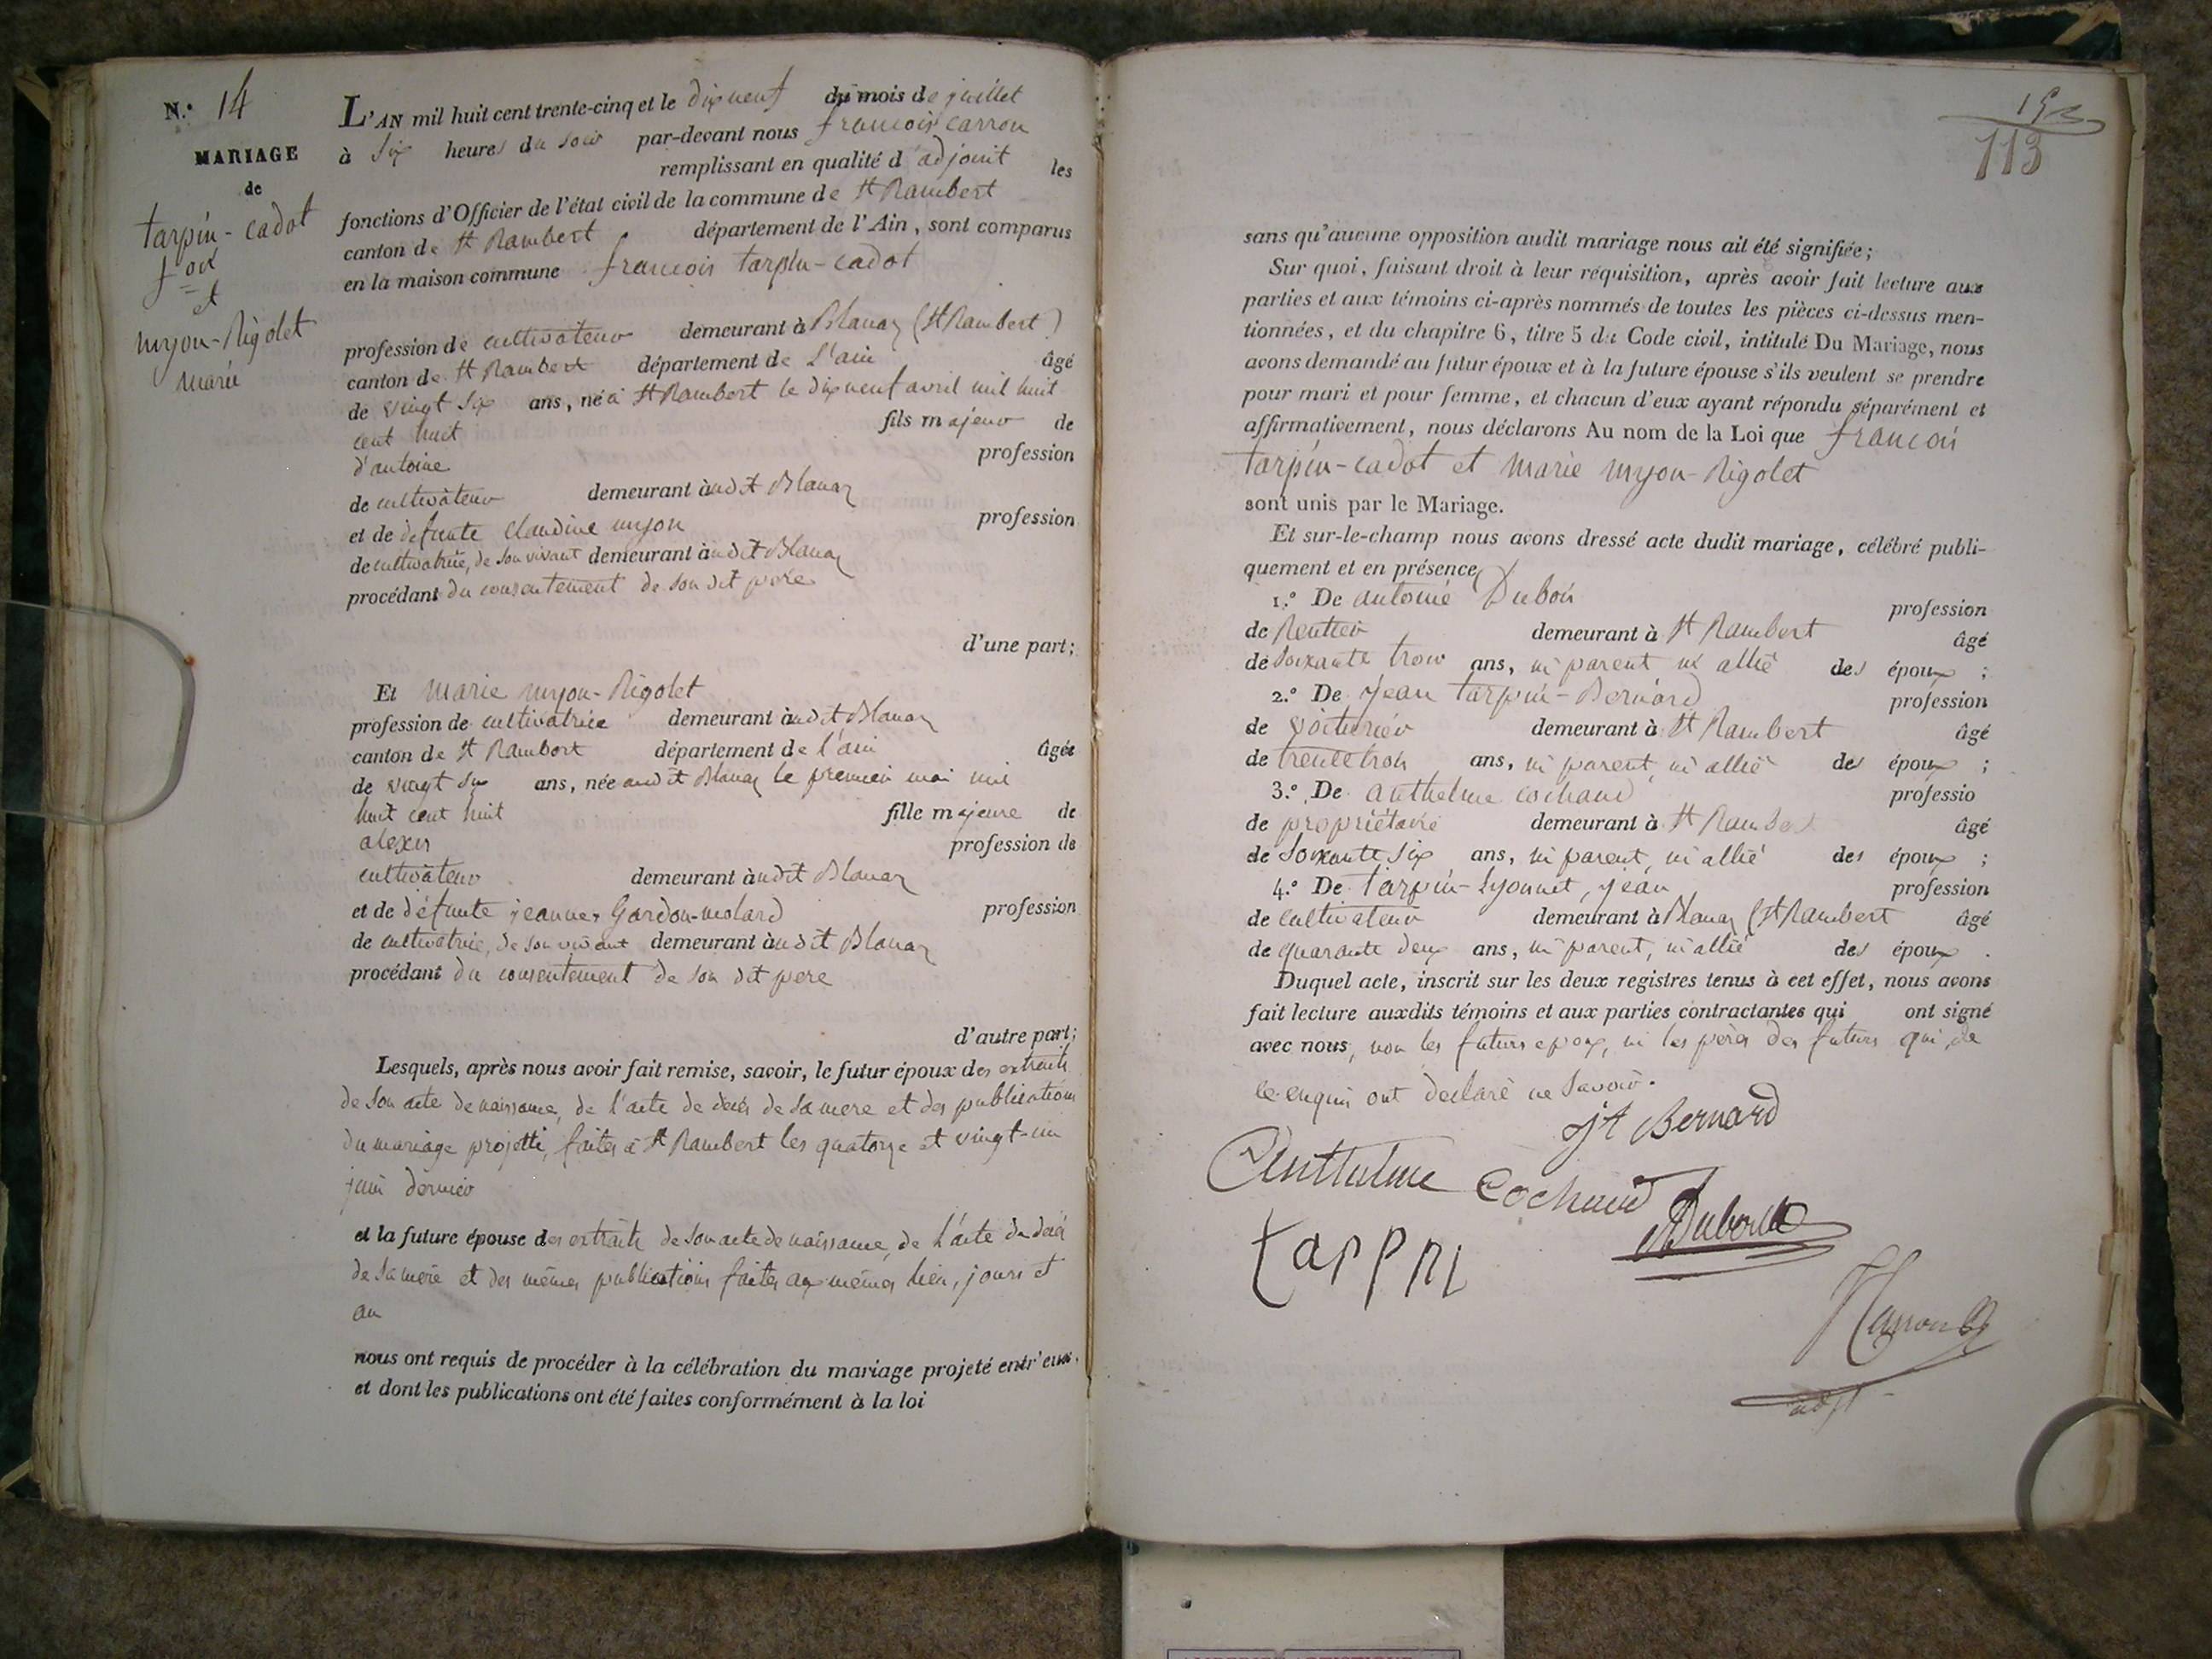 N.° 14
MARIAGE
de
tarpin-cadot
f ois
et
myon-Rigolet
marie
L'AN mil huit cent trente-cinq et le dix neuf du mois de juillet
à six heures du soir par-devant nous francois carron
remplissant en qualité d'adjoint les
fonctions d'Officier de l'état civil de la commune de St Rambert
canton de St Rambert département de l'Ain, sont comparus
en la maison commune francois tarpin-cadot
profession de cultivateur demeurant à Blanaz (St Rambert)
canton de St Rambert département de L'ain âgé
de vingt six ans, né à St Rambert le dix neuf avril mil huit
cent huit fils majeur de
d'antoine profession
de cultivateur demeurant audit Blanaz
et de défunte claudine myon profession
de cultivatrice, de son vivant demeurant audit Blanaz
procédant du consentement de son dit père
d'une part;
Et marie myon-Rigolet
profession de cultivatrice demeurant audit Blanaz
canton de St Rambert département de l'ain âgée
de vingt six ans, née audit Blanaz le premier mai mil
huit cent huit fille majeure de
alexis profession de
cultivateur demeurant audit Blanaz
et de défunte jeanne Gardon-molard profession
de cultivatrice, de son vivant demeurant audit Blanaz
procédant du consentement de son dit pere
d'autre part;
Lesquels, après nous avoir fait remise, savoir, le futur époux des extraits
de son acte de naissance, de l'acte de décès de sa mere et des publications
du mariage projetti, faites à St Rambert les quatorze et vingt-un
juin dernier
et la future épouse des extraits de son acte de naissance, de l'acte de décès
de sa mère et des mêmes publications faites aux mêmes lieu, jours et
an
nous ont requis de procéder à la célébration du mariage projeté entr'eux,
et dont les publications ont été faites conformément à la loi
113
sans qu'aucune opposition audit mariage nous ait été signifiée;
Sur quoi, faisant droit à leur réquisition, après avoir fait lecture aux
parties et aux témoins ci-après nommés de toutes les pièces ci-dessus men-
tionnées, et du chapitre 6, titre 5 du Code civil, intitulé Du Mariage, nous
avons demandé au futur époux et à la future épouse s'ils veulent se prendre
pour mari et pour femme, et chacun d'eux ayant répondu séparément et
affirmativement, nous déclarons Au nom de la Loi que francois
tarpin-cadot et marie myon-Rigolet
sont unis par le Mariage.
Et sur-le-champ nous avons dressé acte dudit mariage, célébré publi-
quement et en présence
1.° De antoine Dubois profession
de Rentier demeurant à St Rambert âgé
de soixante trois ans, ni parent ni allié des époux ;
2.° De jean tarpin-Bernard profession
de voiturier demeurant à St Rambert âgé
de trente trois ans, ni parent, ni allié des époux ;
3.° De anthelme cochaud professio
de propriétaire demeurant à St Rambert âgé
de soixante six ans, ni parent, ni allié des époux ;
4.° De tarpin-Lyonnet, jean profession
de cultivateur demeurant à Blanaz (St Rambert âgé
de quarante deux ans, ni parent, ni allié des époux .
Duquel acte, inscrit sur les deux registres tenus à cet effet, nous avons
fait lecture auxdits témoins et aux parties contractantes qui ont signé
avec nous, non les futurs epoux, ni les pères des futurs qui, de
ce enquis ont declaré ne savoir.
jt Bernard
Anthelme Cochaud
Dubois
tarpin
Carron
adjt